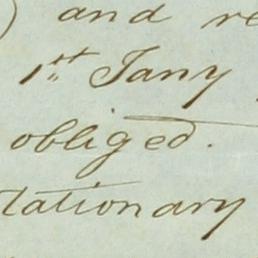 ) and re
1st Jany
obliged.
tationary